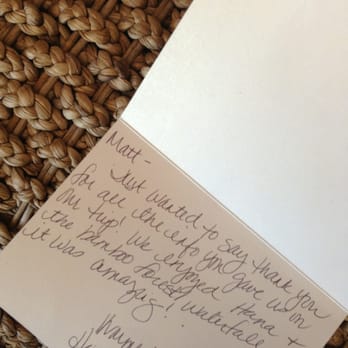 Matt-
Just wanted to say thank you
for all the info you gave us on
our trip! We enjoyed Hana +
the bamboo forest/waterfall
it was amazing!
Wayne